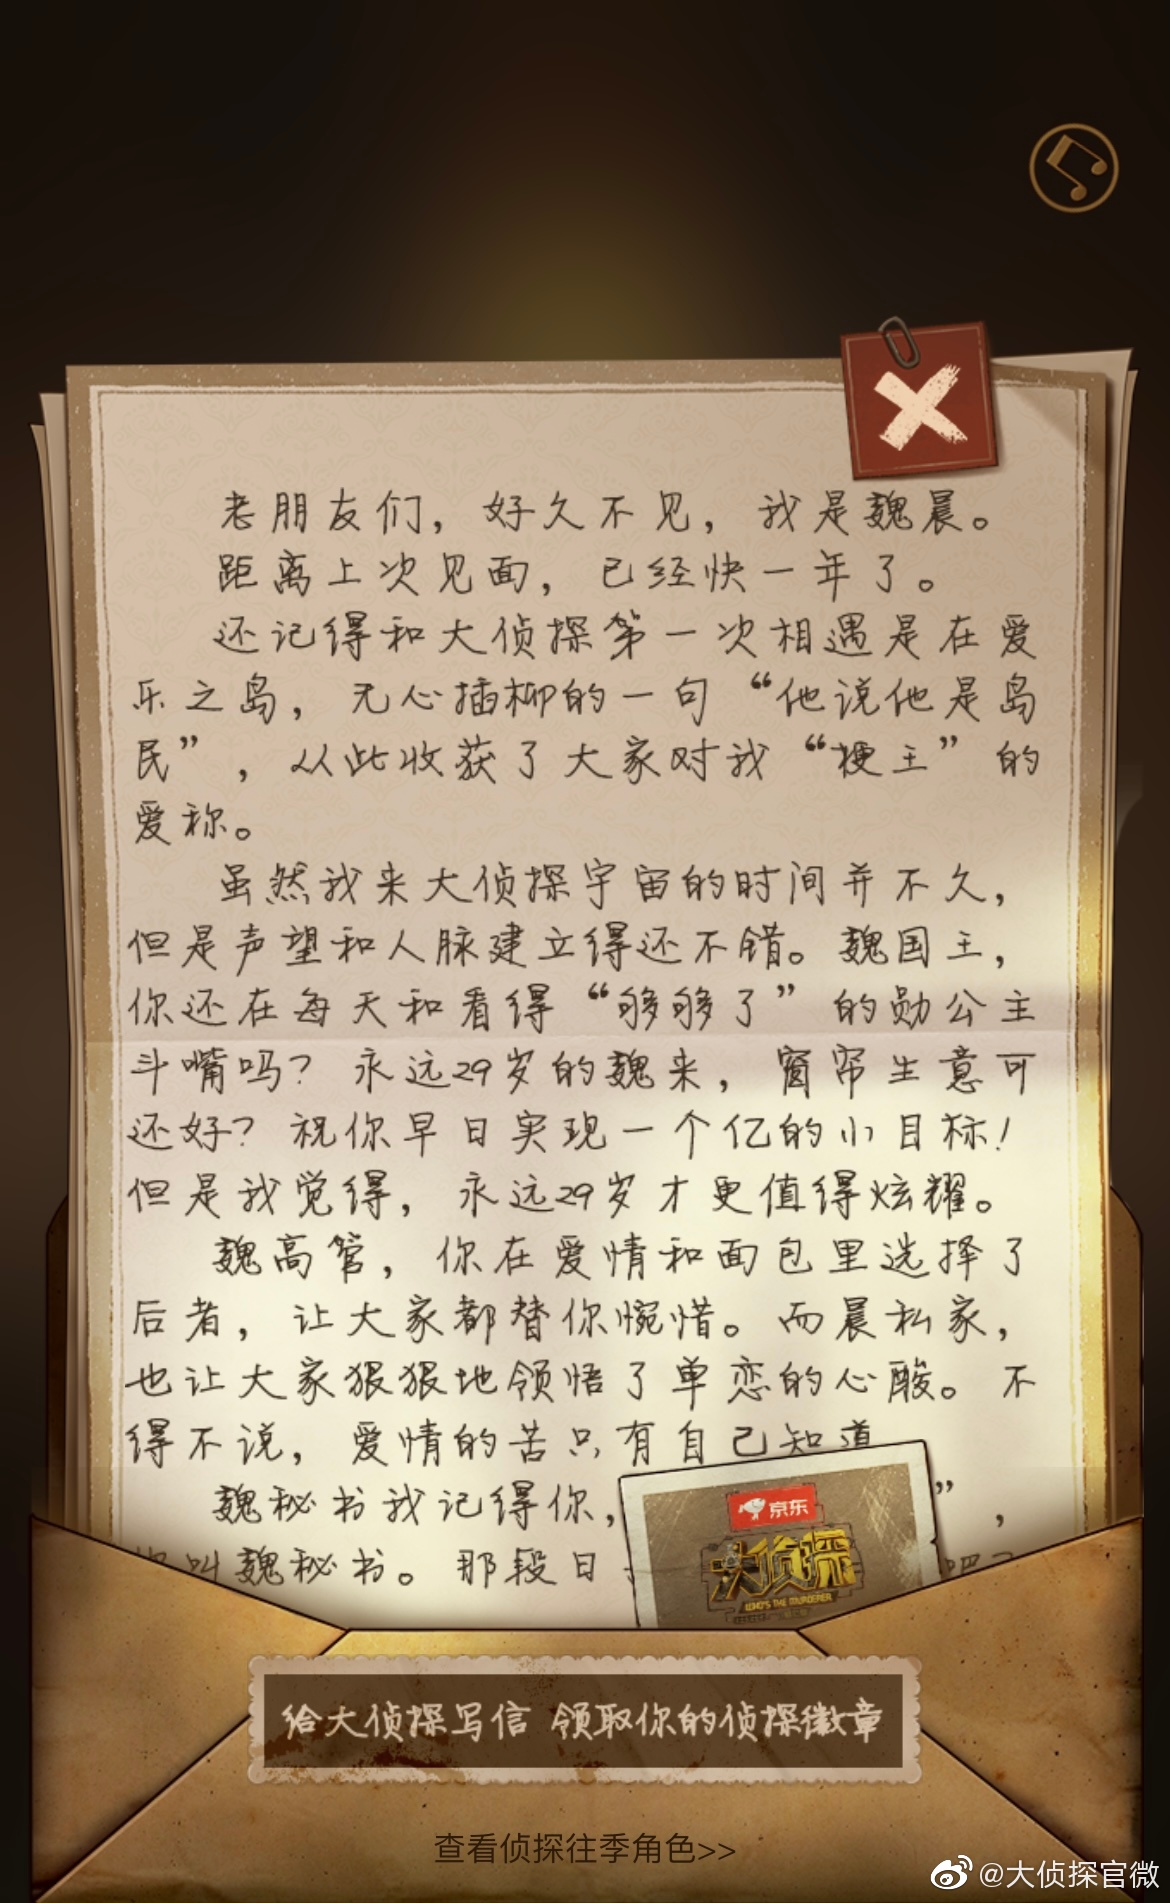 老朋友们，好久不见，我是魏晨。
距离上次见面，已经快一年了。
还记得和大侦探第一次相遇是在爱
乐之岛，无心插柳的一句“他说他是岛
民”，从此收获了大家对我“梗王”的
爱称。
虽然我来大侦探宇宙的时间并不久，
但是声望和人脉建立得还不错。魏国王，
你还在每天和看得“够够了”的勋公主
斗嘴吗？永远29岁的魏来，窗帘生意可
还好？祝你早日实现一个亿的小目标！
但是我觉得，永远29岁才更值得炫耀。
魏高管，你在爱情和面包里选择了
后者，让大家都替你惋惜。而晨私家，
也让大家狠狠地领悟了单恋的心酸。不
得不说，爱情的苦只有自己知道
魏秘书我记得你， ”，
叫魏秘书。那段日
京东
大侦探
WHO'S THE MURDERER
给大侦探写信 领取你的侦探徽章
查看侦探往季角色>>
@大侦探官微